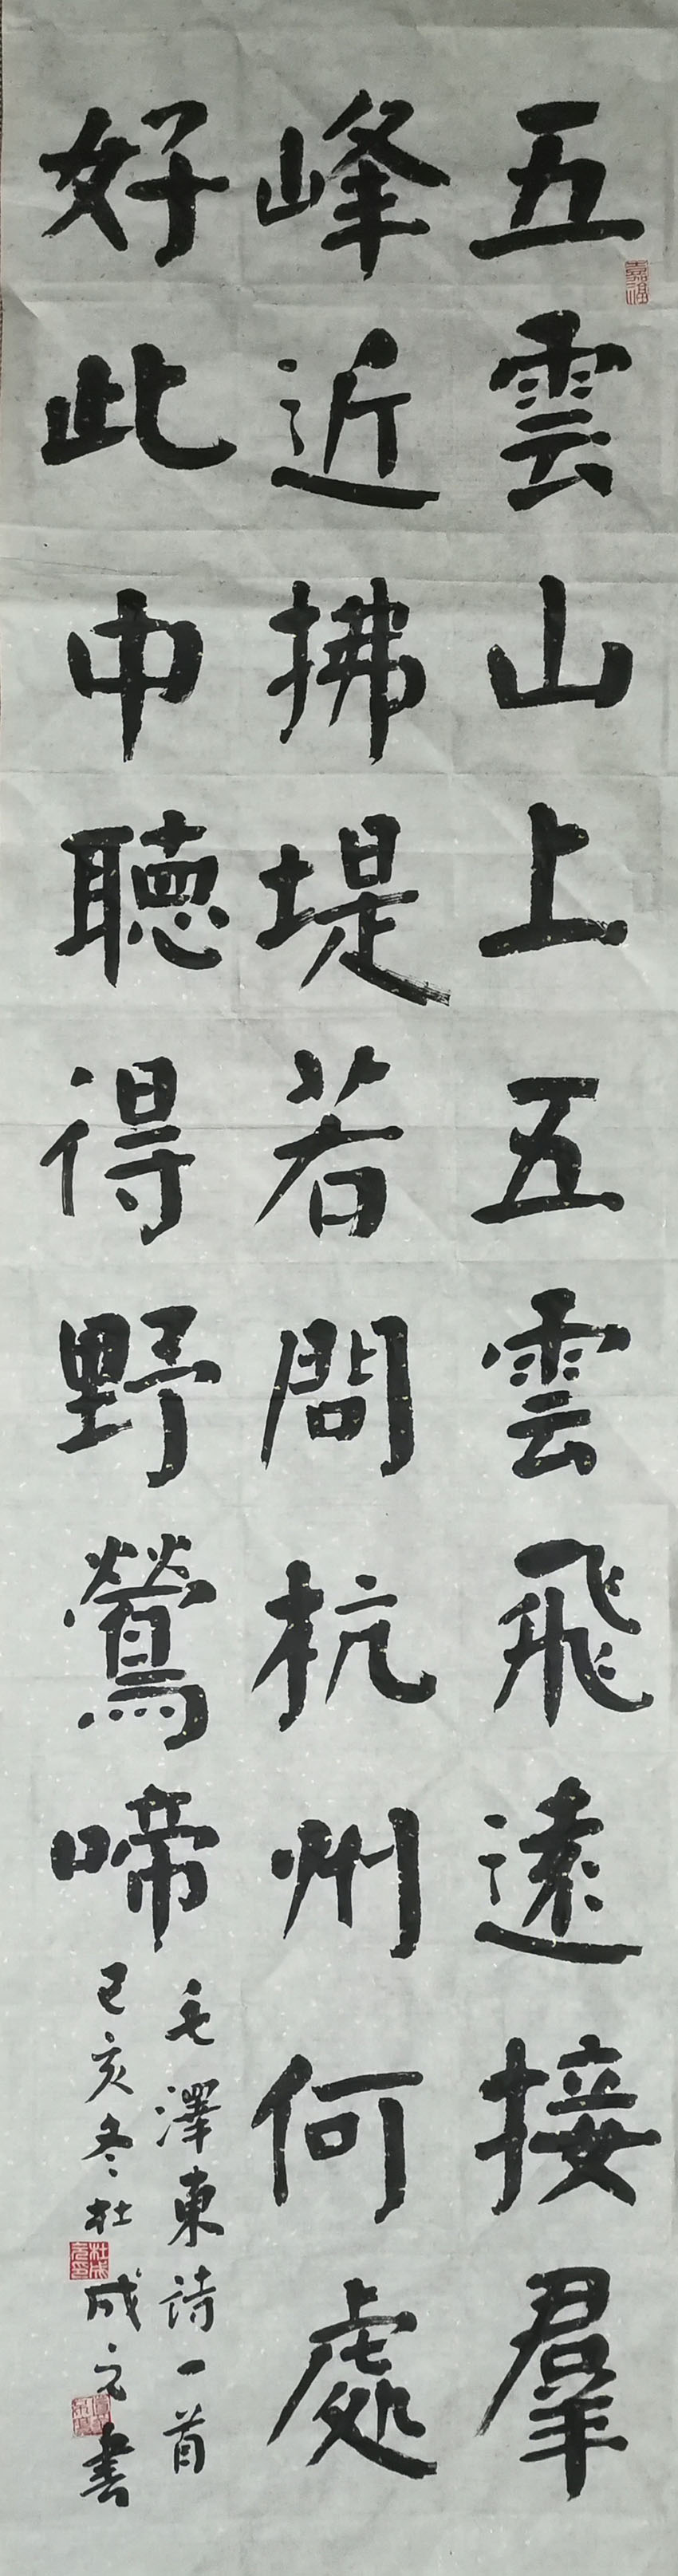 五雲山上五雲飛遠接羣
峰近拂堤若問杭州何處
好此中聽得野鶯啼
毛澤東詩一首
己亥冬杜成元書